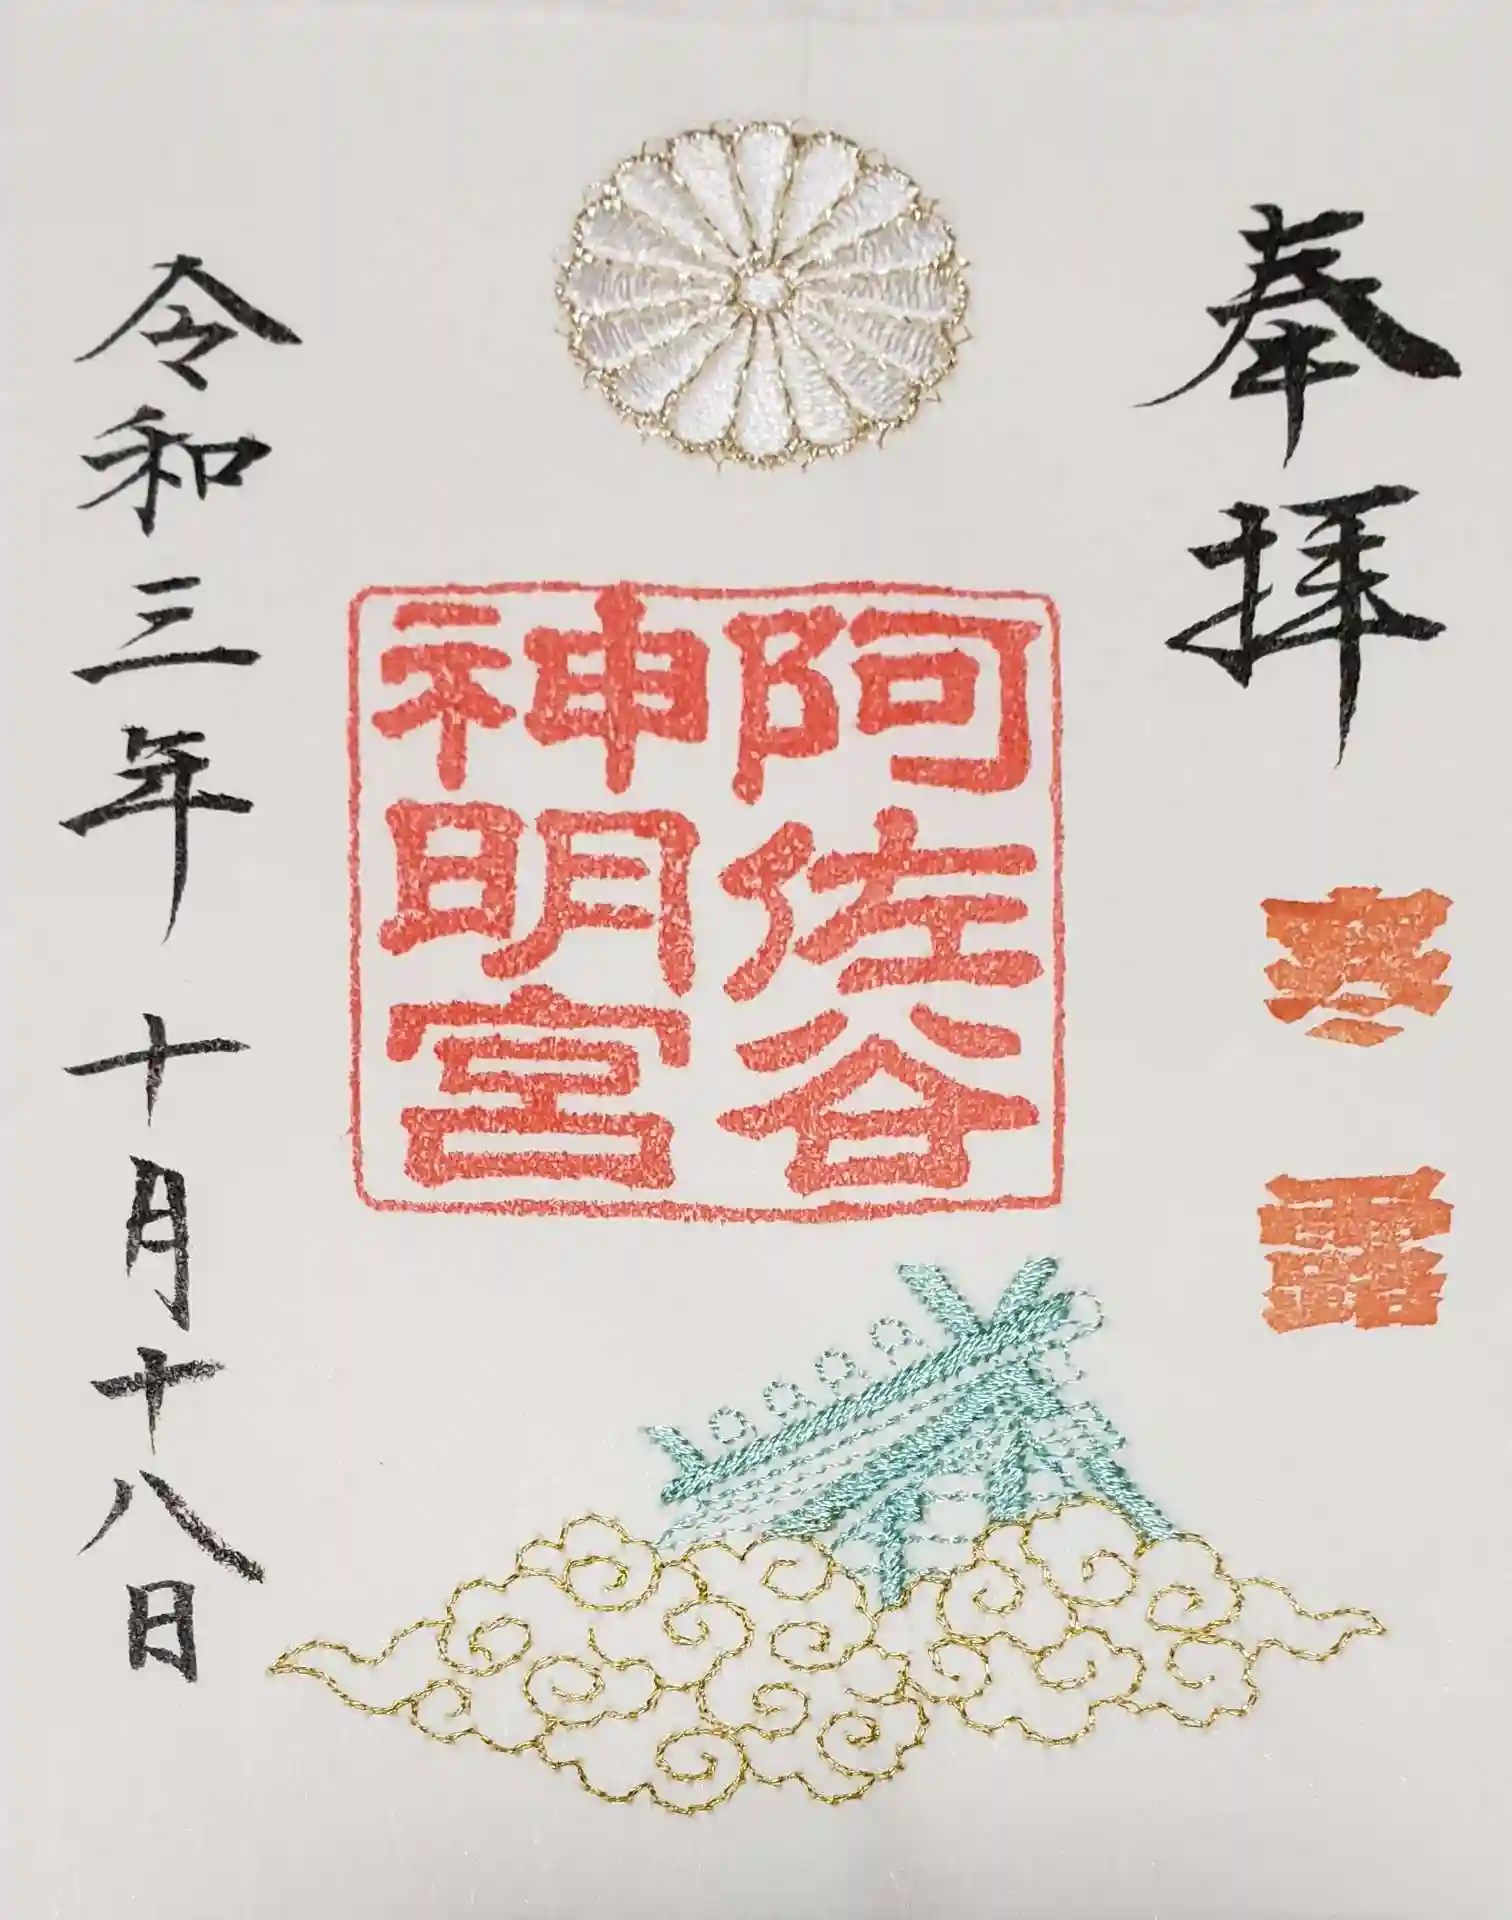 奉拝
阿佐谷
神明宮
令和三年 十月十八日